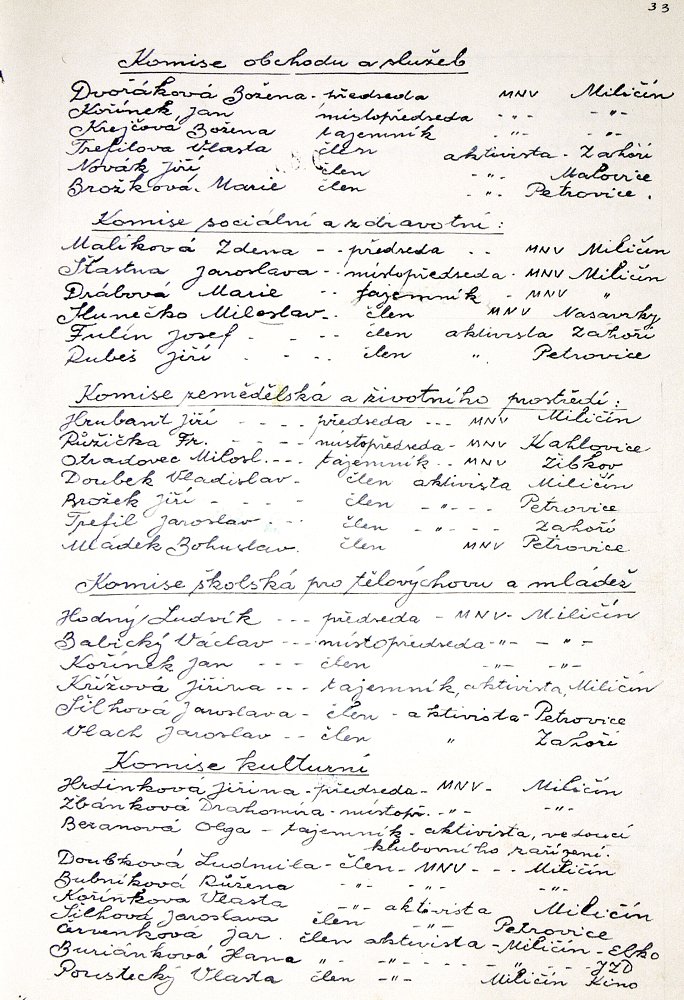 33
Komise obchodu a služeb
Dvořáková Božena - předseda MNV Miličín
Kořínek Jan místopředseda - " - - " -
Krejčová Božena tajemník - " - - " -
Trefilova Vlasta člen aktivista - Záhoří
Novák Jiří člen - " - Malovice
Brožková Marie člen - " - Petrovice.
Komise sociální a zdravotní:
Malíková Zdena - - předseda - - MNV Miličín
Šťastna Jaroslava - - místopředseda - MNV Miličín
Drábová Marie - - tajemník - MNV "
Slunečko Miloslav - - člen MNV Nasavrky
Fulín Josef - - - - člen aktivista Záhoří
Rubeš Jiří - - - - člen " Petrovice
Komise zemědělská a životního prostředí:
Hrubant Jiří - - - - předseda - - - MNV Miličín
Růžička Fr. - - - - místopředseda - MNV Kahlovice
Otradovec Milosl. - - - tajemník - - MNV Žibkov
Doubek Vladislav - člen aktivista Miličín
Brožek Jiří - - - - člen - " - - - Petrovice
Trefil Jaroslav - - - člen - " - - - Záhoří
Mládek Bohuslav. člen MNV Petrovice
Komise školská pro tělovýchovu a mládež
Hodný Ludvík - - - předseda - MNV - Miličín
Babický Václav - - - místopředseda - " - - " -
Kořínek Jan - - - člen - " - - " -
Křížová Jiřina - - - tajemník, aktivista, Miličín
Šilhová Jaroslava - člen - aktivista - Petrovice
Vlach Jaroslav - - člen " Záhoří
Komise kulturní
Hrdinková Jiřina - předseda - MNV - Miličín
Zbánková Drahomíra - místopř. - " - - " -
Beranová Olga - tajemník - aktivista, vedoucí
klubovního zařízení.
Doubková Ludmila - člen - MNV - - - Miličín
Bubníková Růžena - " - - " - - " -
Kořínkova Vlasta - " - aktivista Miličín
Šilhová Jaroslava člen - " - Petrovice
Červenková Jar. člen aktivista - Miličín - Elko
Buriánková Hana " - " - - - - " - - - JZD
Poustecký Vlasta člen - " - Miličín Kino